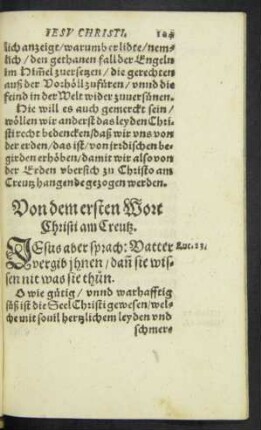 IESV CHRISTI.
lich anzeigt/warumb er lidte/nem⸗
lich/den gethanen fall der Engeln
im Him̃el zuersetzen/die gerechten
auß der Vorhöll zufüren/vnnd die
feind in der Welt wider zuuersünen.
Hie will es auch gemerckt sein/
wöllen wir anderst das leyden Chri⸗
sti recht bedencken/daß wir vns von
der erden/das ist/von irdischen be⸗
girden erhöben/damit wir also von
der Erden vbersich zu Christo am
Creutz hangende gezogen werden.
Von dem ersten Wort
Christi am Creutz.
JEsus aber sprach: Vatter
Luc. 23.
vergib jhnen/dañ sie wis⸗
sen nit was sie thůn.
O wie gütig/vnnd warhafftig
süß ist die Seel Christi gewesen/wel⸗
che mit souil hertzlichem leyden vnd
schmer⸗